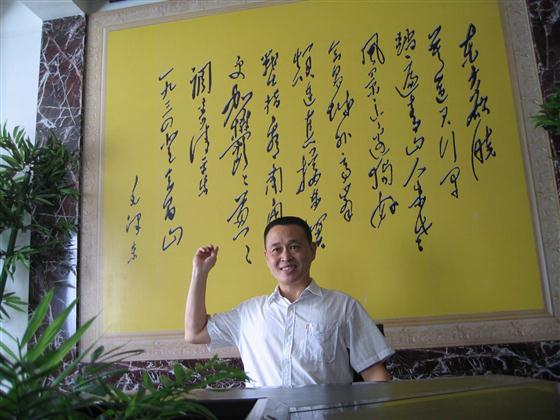 东方欲晓
莫道君行早
踏遍青山人未老
风景这边独好
会昌城外高峰
颠连直接东溟
战士指看南粤
更加郁々葱々
调寄清平乐
一九三四登会昌山
毛泽东